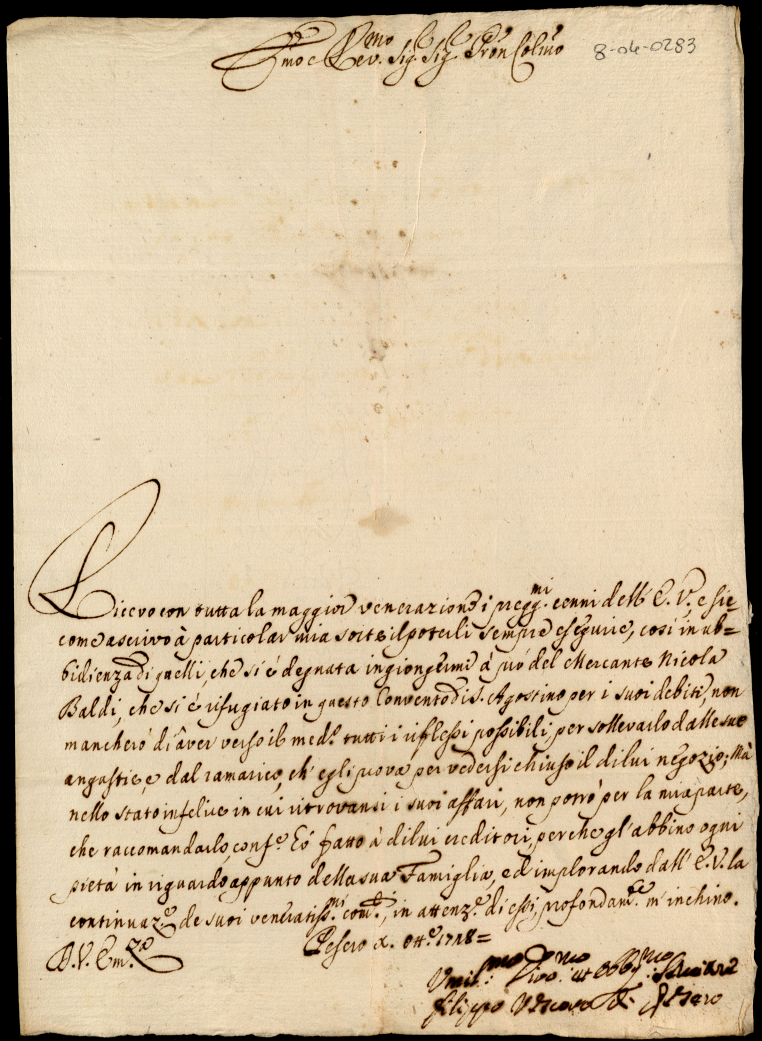 Emo e Rev.mo Sig. Sig. Pron Colmo
8-04-0283
Ricevo con tutta la maggior venerazione i pregg.mi cenni dell' E. V., e sic
come ascrivo à particolar mia sorte il poterli sempre eseguire, così in ub=
bidienza di quelli, che si è degnata ingiongerme à prò del Mercante Nicola
Baldi, che si è rifugiato in questo Convento di S. Agostino per i suoi debiti, non
mancherò di aver verso il med.o tutti i riflessi possibili, per sollevarlo dalle sue
angustie, e dal ramarico, ch' egli prova per vedersi chiuso il di lui negozio; Mà
nello stato infelice in cui ritrovansi i suoi affari, non potrò per la mia parte,
che raccomandarlo, conf.e hò fatto à di lui creditori, perche gl' abbino ogni
pietà in riguardo appunto della sua Famiglia, ed implorando dall' E. V. la
continuaz.e de suoi veneratiss.mi com.di, in attenz.e di essi, profondam.te m' inchino.
D. V. Em.za
Pesaro x. Ott.e 1718=
Umil.mo Div.mo et Obbg.mo Servitore
Filippo Vescovo di Pesaro